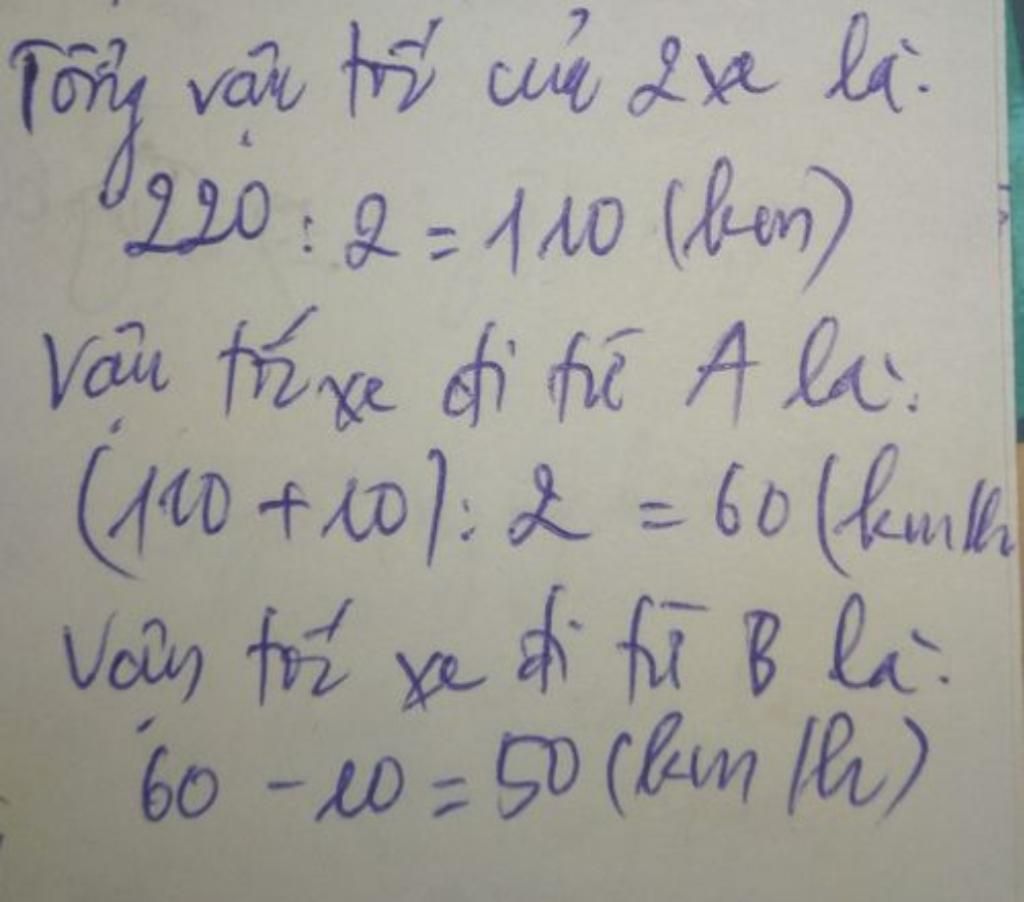 Tổng vận tốc của 2 xe là:
220 : 2 = 110 (km)
Vận tốc xe đi từ A là:
(110 + 10) : 2 = 60 (km/h
Vận tốc xe đi từ B là:
60 - 10 = 50 (km/h)